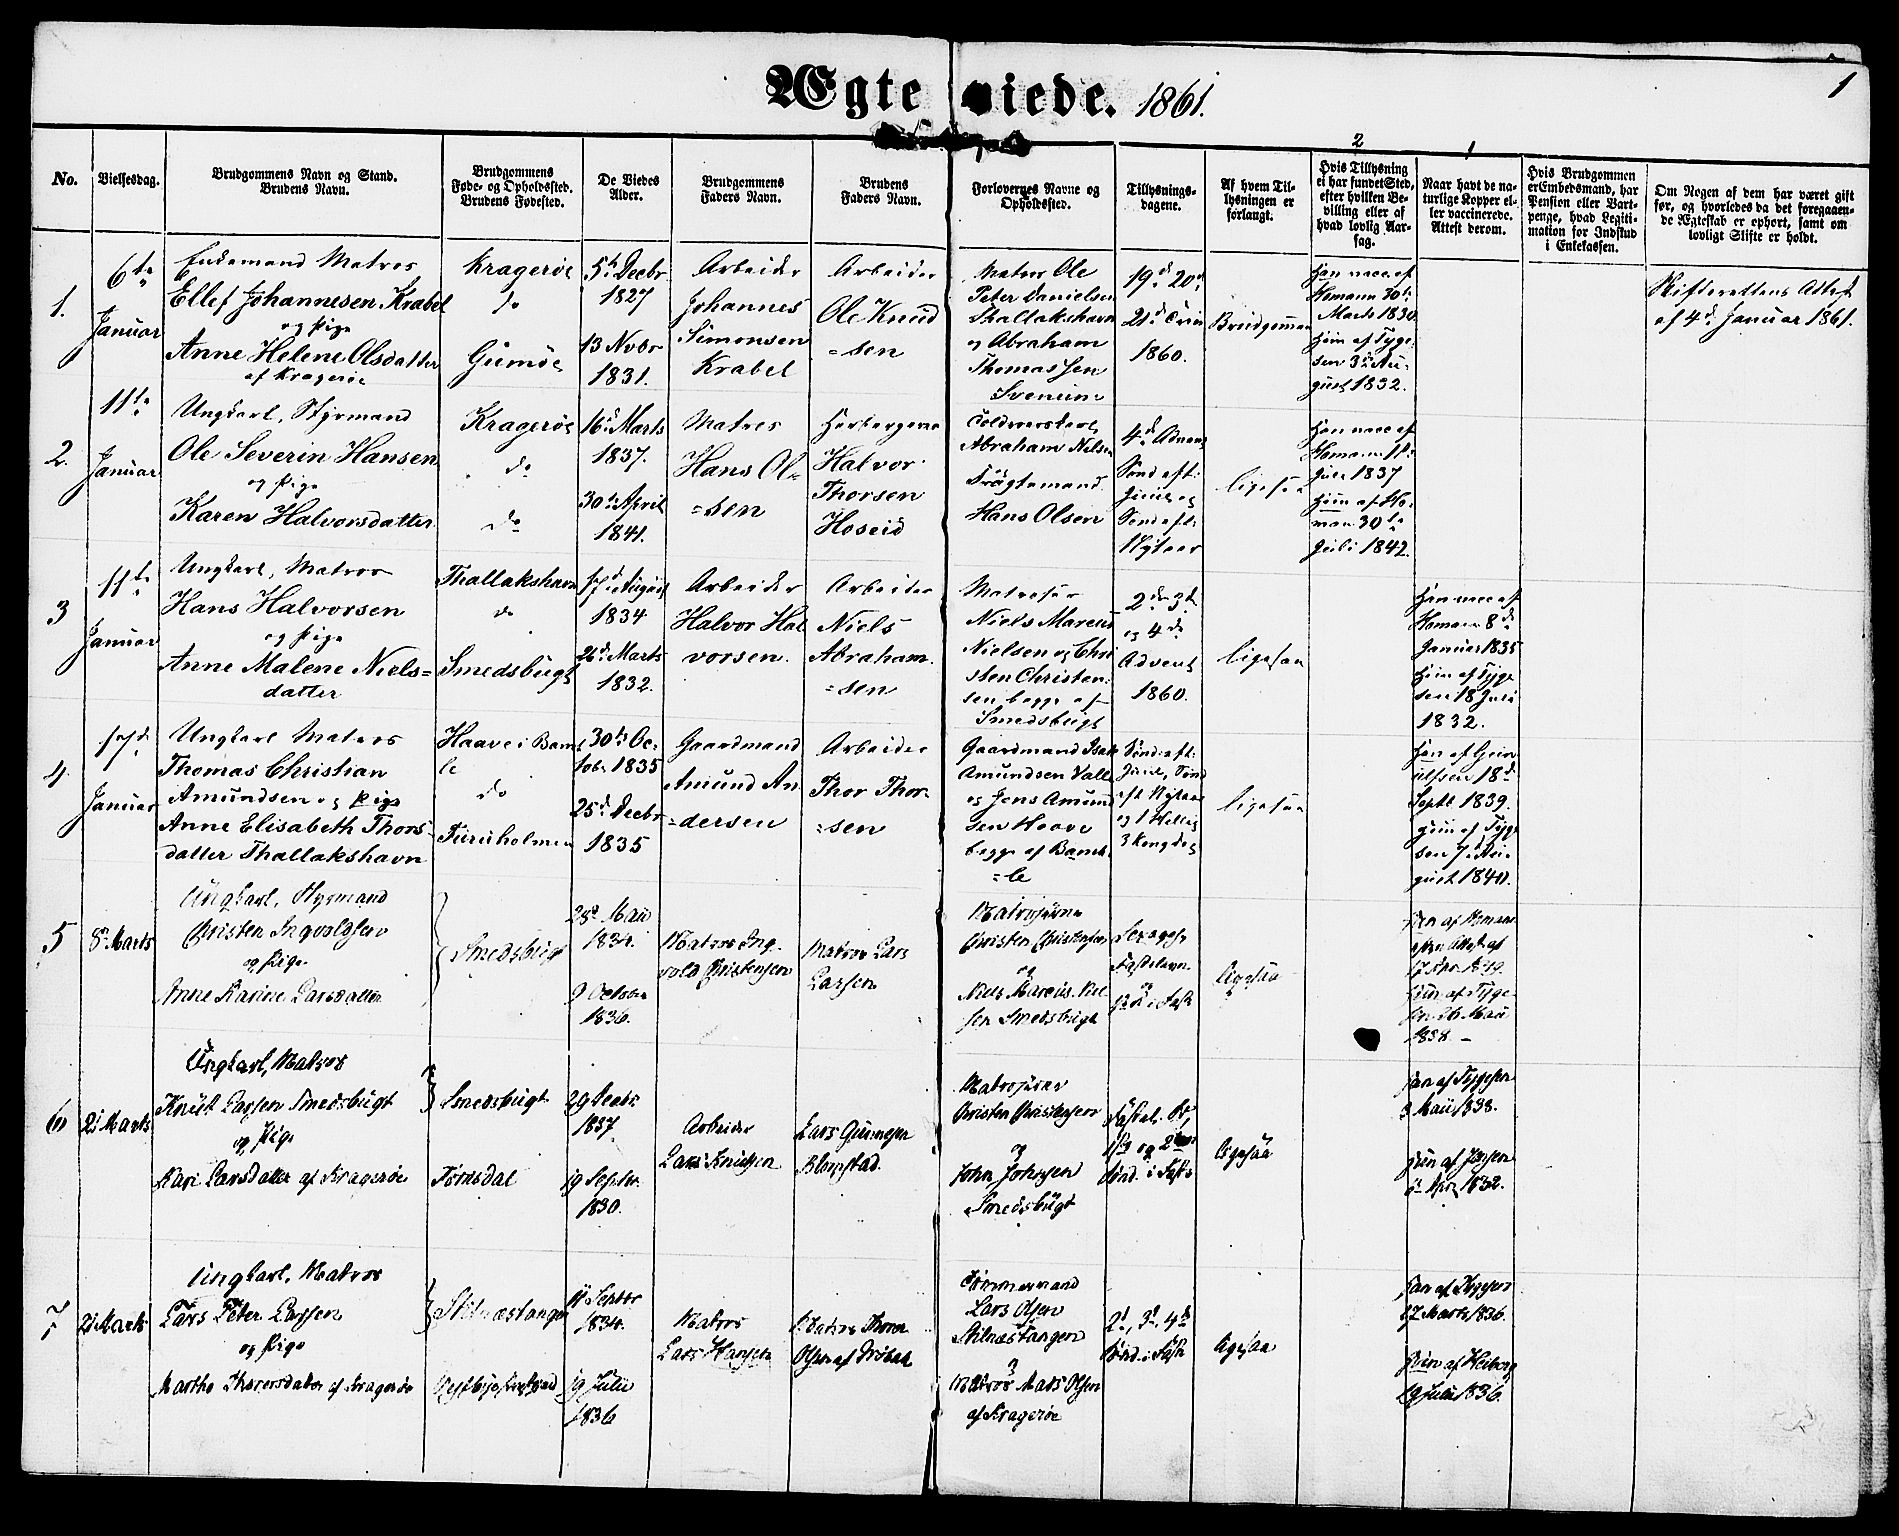 Ægteviede. 1861.
1
2
1
No.
Vielsesdag.
Brudgommens Navn og Stand.
Brudens Navn.
Brudgommens
Føde- og Opholdssted.
Brudens Fødested.
De Viedes
Alder.
Brudgommens
Faders Navn.
Brudens
Faders Navn.
Forlovernes Navne og
Opholdssted.
Tillysnings-
dagene.
Af hvem Til-
lysningen er
forlangt.
Hvis Tillysning
ei har fundet Sted,
efter hvilken Be-
villing eller af
hvad lovlig Aar-
sag.
Naar havt de na-
turlige Kopper el-
ler vaccinerede.
Attest derom.
Hvis Brudgommen
er Embedsmand, har
Pension eller Vart-
penge, hvad Legiti-
mation for Indskud
i Enkekassen.
Om Nogen af dem har været gift
før, og hvorledes da det foregaaen-
de Ægteskab er ophørt, samt om
lovligt Skifte er holdt.
1.
6te
Januar
Enkemand Matros
Ellef Johannesen Krabel
og Pige
Anne Helene Olsdatter
af Kragerøe
Kragerøe
do
Gumøe
5te Decbr
1827
13 Novbr
1831.
Arbeider
Johannes
Simonsen
Krabel
Arbeider
Ole Knud
=sen
Matros Ole
Peter Danielsen
Thallakshavn
og Abraham
Thomassen
19de 20de
21de
1860.
Brudgommen
Han vacc. af
Homann 30te
Marts 1830
Hun af Tyge
sen 3die Au-
gust 1832.
Skifterettens Attest
af 4de Januar 1861.
2.
11te
Januar
Ungkarl, Styrmand
Ole Severin Hansen
og Pige
Karen Halvorsdatter
Kragerøe
do
do
16de Marts
1837.
30te April
1841.
Matros
Hans Ol=
=sen
Halvor
Thorsen
Hoseid
Abraham Nielsen
Hans Olsen
4de Advent
Sønd. eft:
Juul og
Sønd eft:
Nytaar
ligesaa
Han vacc af
Homann 11te
Juli 1837
Hun af Ho-
man 30te
Juli 1842.
3
11te
Januar
Ungkarl, Matros
Hans Halvorsen
og Pige
Anne Malene Niels=
datter
Thallakshavn
do
Smedsbugt
17de August
1834
26de Marts
1832.
Arbeider
Halvor Hal
vorsen.
Arbeider
Niels
Abraham.
=sen
Matroser
Niels Marcus
Nielsen og Chri
sten Christen-
sen begge af
Smedsbugt
2den 3die
og 4de
Advent
1860.
ligesaa
Han vacc af
Homann 8de
Januar 1835
Hun af Tyge
sen 18 Juli
1832.
4
17de
Januar
Ungkarl Matros
Thomas Christian
Amundsen og Pige
Anne Elisabeth Thors=
datter Thallakshavn
Haave i Bamb
le
do
Furuholmen
30te Oc-
tobr 1835
25de Decbr
1835
Gaardmand
Amund An
=dersen
Arbeider
Thor Thor-
=sen
Gaardmand Isak
Amundsen Valle
og Jens Amund
sen Haave
begge af Bamb-
=le
Sønd: eft:
Juul, Sønd
eft Nytaar
og Hellig
3 Kongdag
ligesaa
Han af
18de
Septbr 1839.
Hun af Tyge
sen 7de Au-
gust 1840.
5
8de Marts
Ungkarl, Styrmand
Christen Ingvoldsen
og Pige
Anne Karine Larsdatter
Smedsbugt
28de Mai
1834.
9 October
1836.
Matros Ing-
vold Christensen
Matros Lars
Larsen
Matroserne
Christen Christensen
og
Niels Marcus Niel
sen Smedsbugt
Sexages.
Fastelavn
og
1ste S. i Fast
ligesaa
Hun af Tyge-
sen 26 Mai
1838.
6
21 Marts
Ungkarl, Matros
Knut Larsen Smedsbugt
og Pige
Kari Larsdatter af Kragerøe
Smedsbugt
Tørdsdal
29 Decbr
1837.
19 Septbr.
1830.
Arbeider
Lars Knutsen
Lars Gunnesen
Matroserne
Christen Christensen
og
John Johnsen
Smedsbugt
1ste og 2den
Sønd. i Faste
ligesaa
Han af Tygesen
3 Mai 1838.
Hun af Jensen
1832.
7
21 Marts
Ungkarl, Matros
Lars Peter Larsen
og Pige
Marthe Thoresdatter af Kragerøe
Stilnæstangen
11 Septbr
1834.
19 Julii
1836
Matros
Lars Hansen
Matros Thore
Olsen af
Tømmermand
Lars Olsen
Stilnæstangen
og
Matros Mads Olsen
af Kragerøe
2d, 3d, 4de
Sønd. i Fast
ligesaa
Han af Tygesen
17 Marts 1836.
Hun af Heiberg
19 Juli 1836.